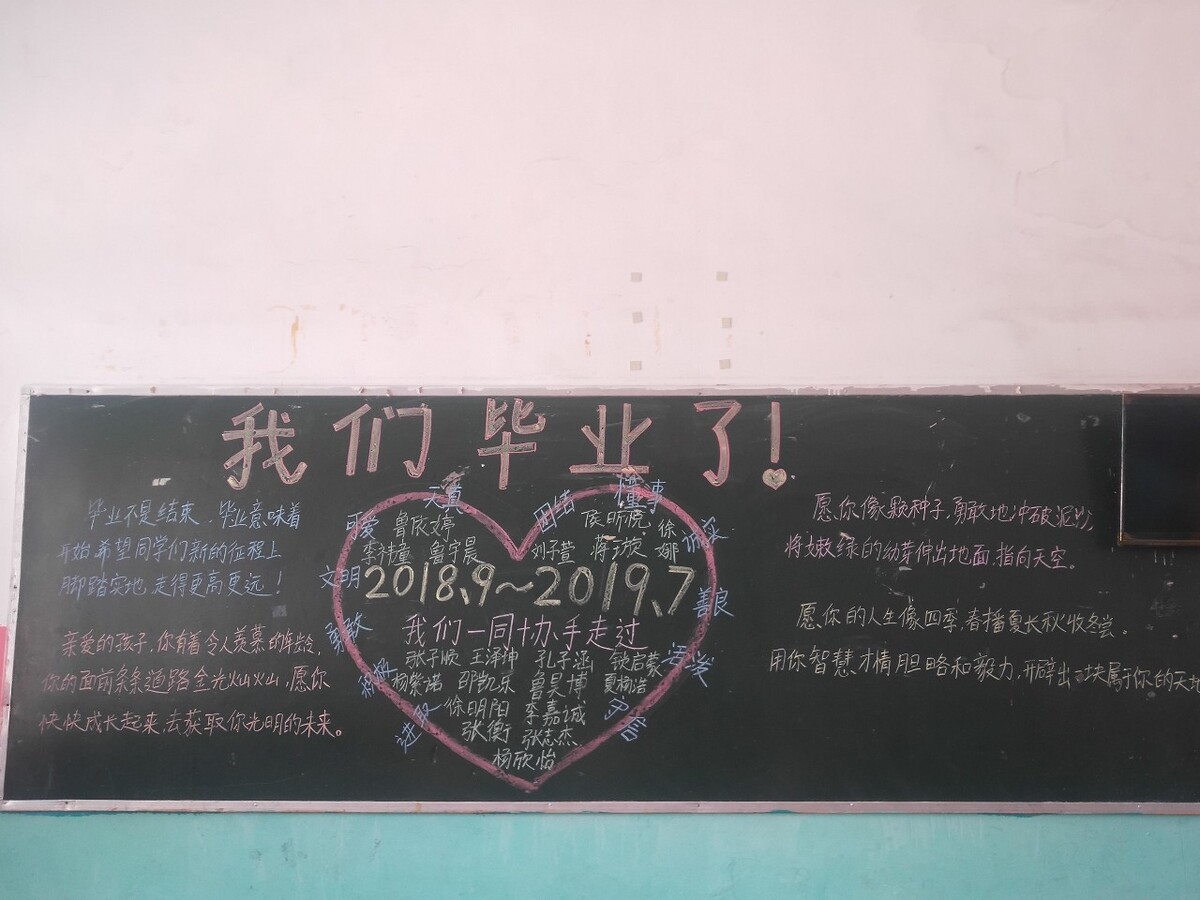 我们毕业了!
毕业不是结束,毕业意味着
开始.希望同学们新的征程上
脚踏实地,走得更高更远!
亲爱的孩子,你有着令人羡慕的年龄,
你的面前条条道路金光灿灿,愿你
快快成长起来,去获取你光明的未来。
天真
可爱
文明
勇敢
进取
团结
懂事
善良
鲁依婷
李祎童 鲁宇晨
刘子萱 蒋 漩 徐娜
2018、9~2019、7
我们一同协手走过
张子顺 王泽坤 孔子涵 启蒙
杨紫诺 邵凯乐 鲁昊博 夏杨浩
徐明阳 李嘉诚
张衡 张志杰
杨欣怡
愿你像颗种子,勇敢地冲破泥沙,
将嫩绿的幼芽伸出地面,指向天空。
愿你的人生像四季,春播夏长秋收冬尝。
用你智慧才情胆略和毅力,开辟出一块属于你的天地